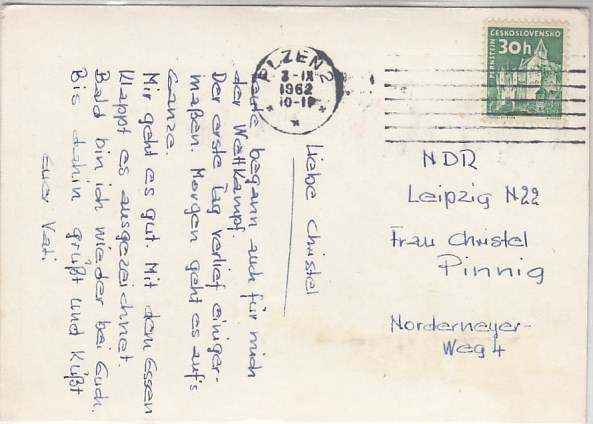 Liebe Christel
Heute begann auch für mich
der Wettkampf.
Der erste Tag verlief einiger-
maßen. Morgen geht es auf's
Ganze.
Mir geht es gut. Mit dem Essen
klappt es ausgezeichnet.
Bald bin ich wieder bei Euch.
Bis dahin grüßt und küßt
Euer Vati.
PLZEŇ 2
3-IX
1962
10-11
ČESKOSLOVENSKO
PERNŠTEJN
30h
NDR
Leipzig N22
Frau Christel
Pinnig
Norderneyer-
Weg 4